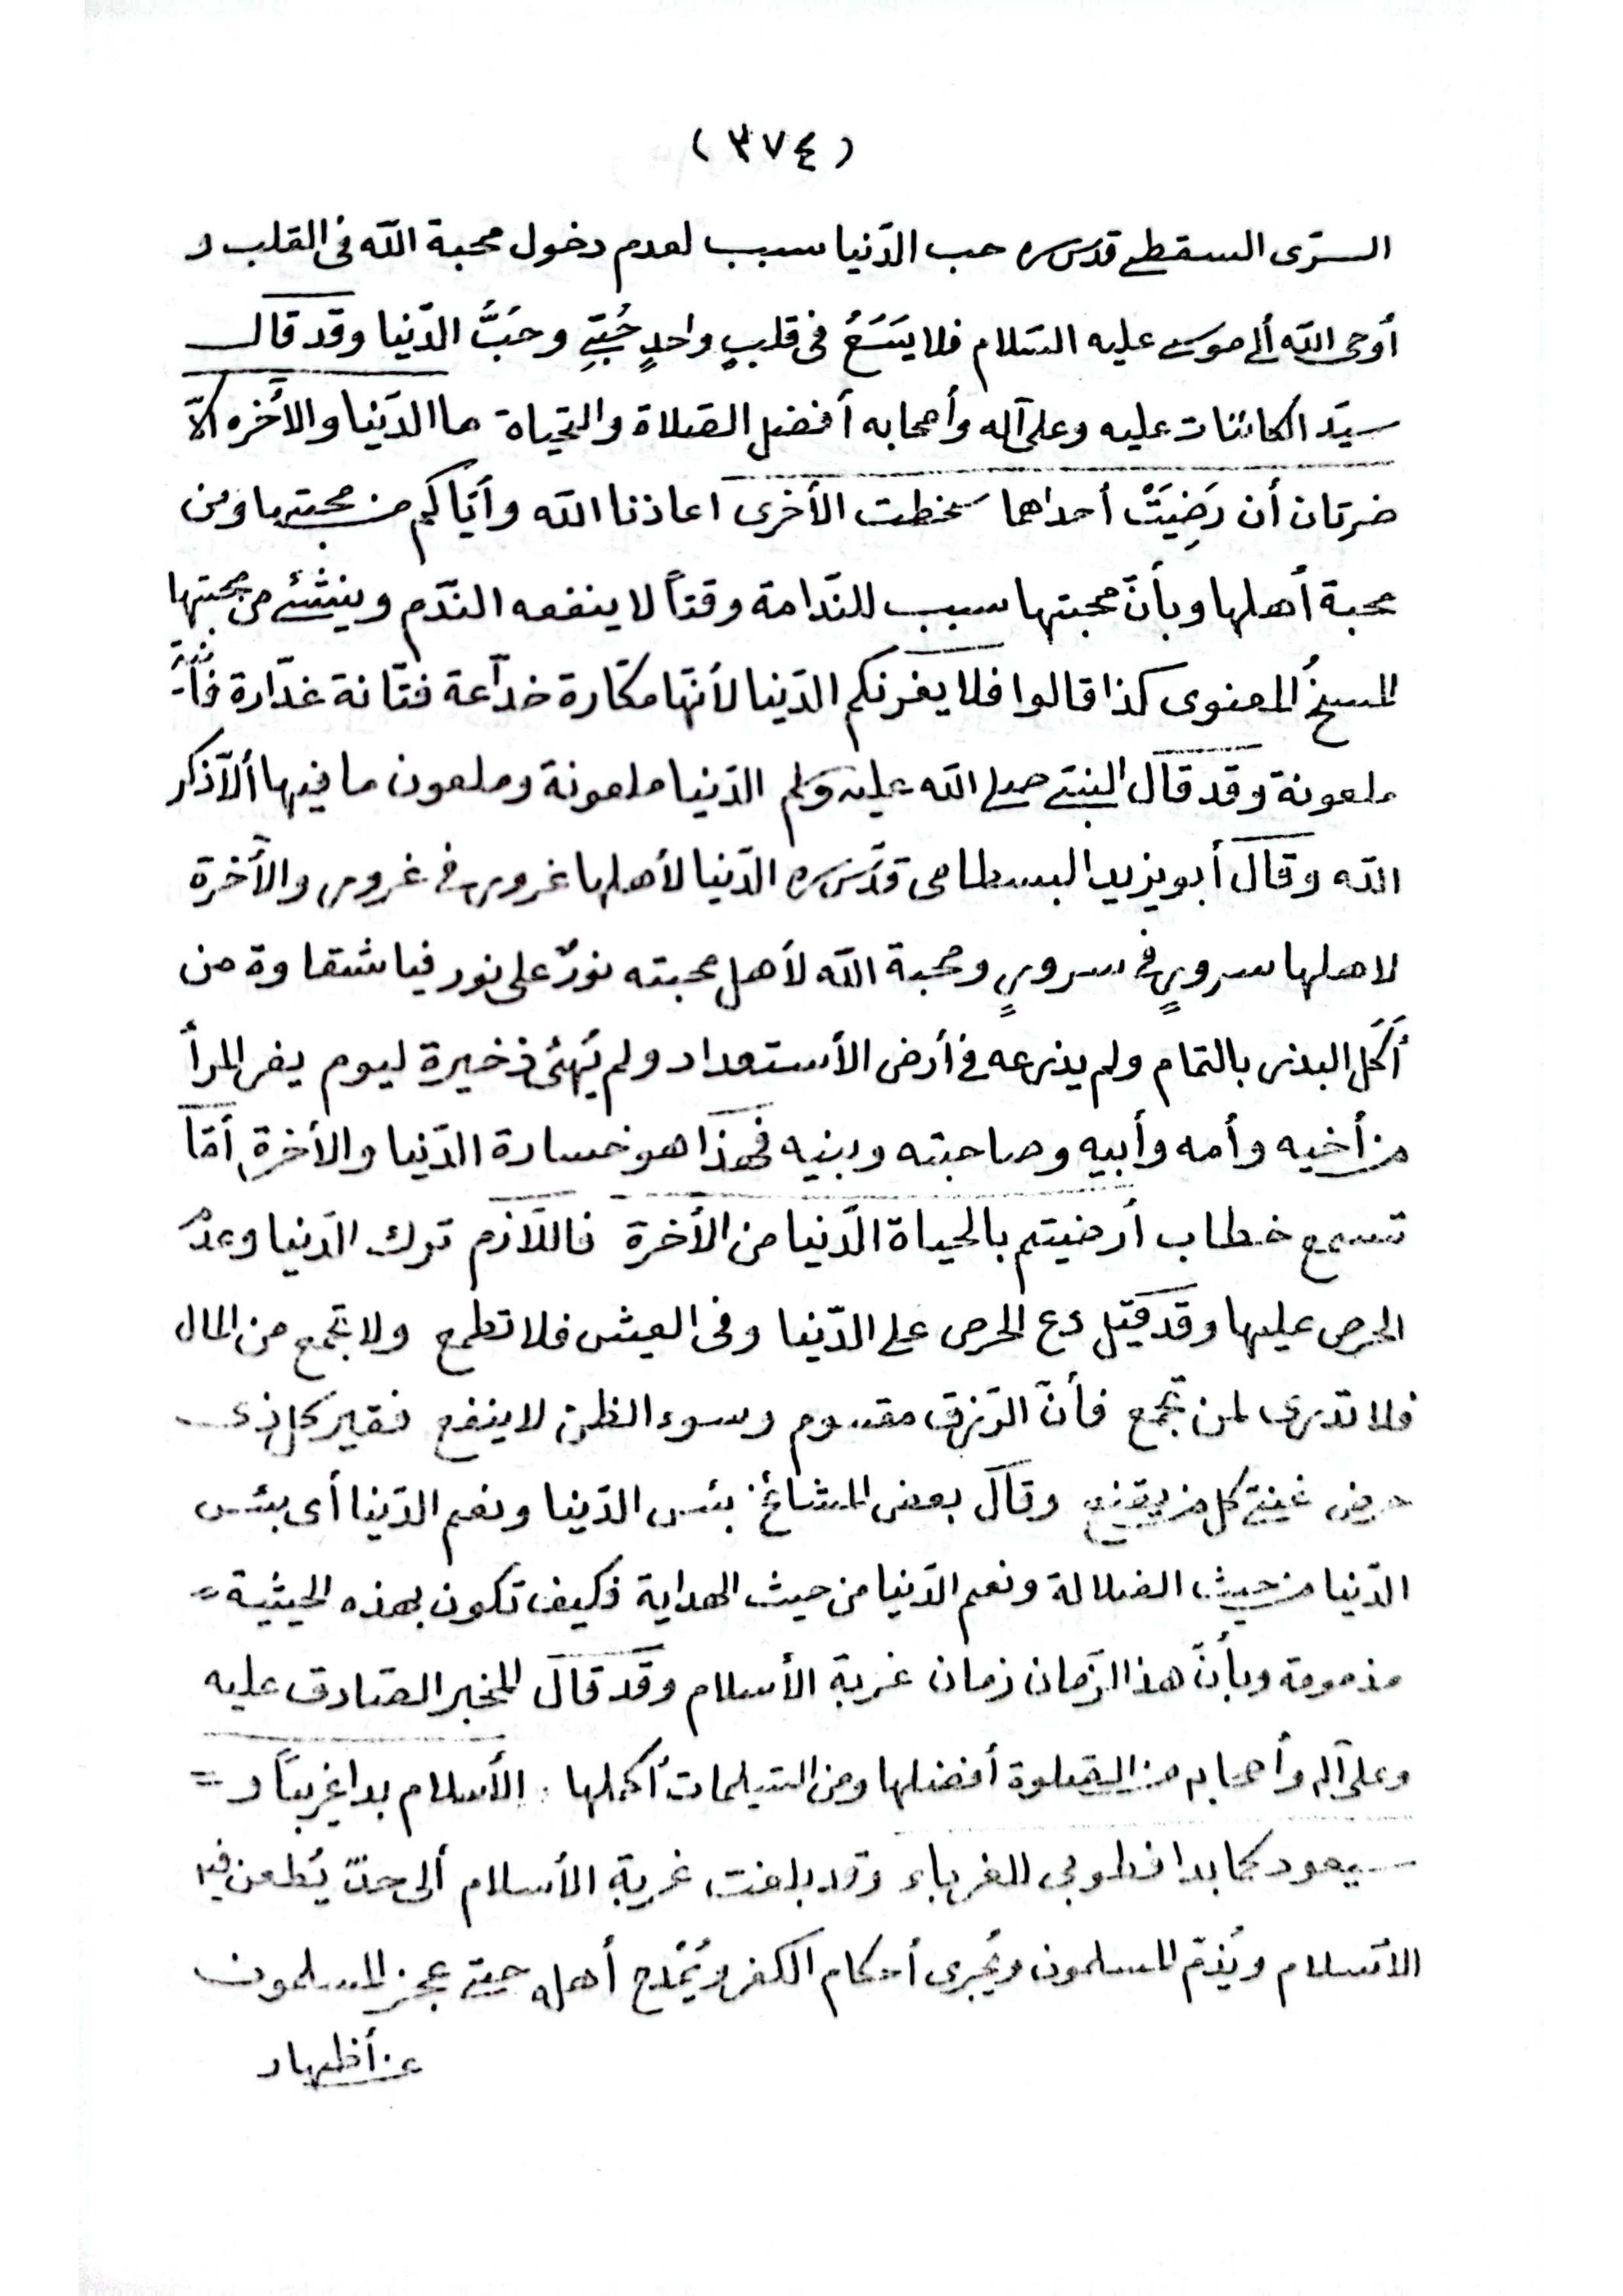 (٣٧٤)
السرّى السقطى قدس سره حب الدّنيا سبب لعدم دخول محبة الله فى القلب و
أوحى الله ألى موسى عليه السّلام فلا يَسَعُ فى قلبٍ واحدٍ حُبّىِ وحُبُّ الدّنيا وقد قال
سيّد الكائنات عليه وعلى آله وأصحابه أفضل الصّلاة والتحياة ما الدّنيا والأخره الّا
ضرتان أن رَضِيَتْ أحداهما سخطت الأخرى اعاذنا الله وأيّاكم من محبتها ومن
محبة أهلها وبأنّ محبتها سبب للنّدامة وقتاً لا ينفعه النّدم وينشئ من محبتها
المسخُ المعنوى كذا قالوا فلا يغرنكم الدّنيا لأنّها مكّارة خدّاعة فتّانة غدّارة
ملعونة وقد قال النبىّ صلى الله عليه وسلم الدّنيا ملعونة وملعون ما فيها ألّا ذكر
الله وقال أبو يزيد البسطامى قدّس سره الدّنيا لأهلها غرور فى غرور والأخرة
لاهلها سرورٍ فى سرورٍ ومحبة الله لأهل محبته نورٌ على نور فيا شقاوة من
أَكَلَ البذر بالتمام ولم يذرعه فى أرض الأستعداد ولم يُهئ ذخيرة ليوم يفر المرأ
من أخيه وأمه وأبيه وصاحبته وبنيه فهذا هو خسارة الدّنيا والأخرة أمّا
تسمع خطاب أرضيتم بالحياة الدّنيا من الأخرة فاللّازم ترك الدّنيا وعدم
الحرص عليها وقد قيّل دع الحرص على الدّنيا وفى العيش فلا تطمع ولا تجمع من المال
فلا تدرى لمن تجمع فأنّ الرّزق مقسوم وسوء الظن لا ينفع فقير كل ذى
حرص غنىّ كل من يقنع وقال بعض المشائخ بئس الدّنيا ونعم الدّنيا أى بئس
الدّنيا من حيث الضلالة ونعم الدّنيا من حيث الهداية فكيف تكون بهذه الحيثية =
مذمومة وبأنّ هذا الزّمان زمان غربة الأسلام وقد قال المخبر الصّادق عليه
وعلى آله وأصحابه من الصّلوة أفضلها ومن التسليمات أكملها الأسلام بدا غريباً و =
سيعود كما بدا فطوبى للغرباء وقد بلغت غربة الأسلام ألى حدّ يُطعن فيه
الأسلام ويُذمّ المسلمون ويُجرى أحكام الكفر ويُمْدح أهله حتى عجز المسلمون
عن أظهار